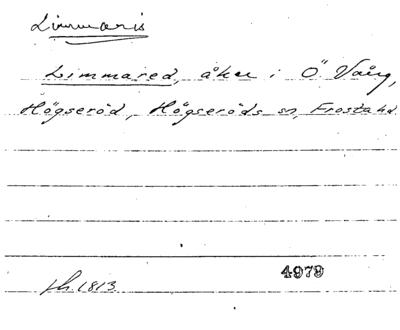 Limmaris
Limmared, åker i Ö. Vång,
Högseröd, Högseröds sn, Frosta hd
4979
sk. 1813